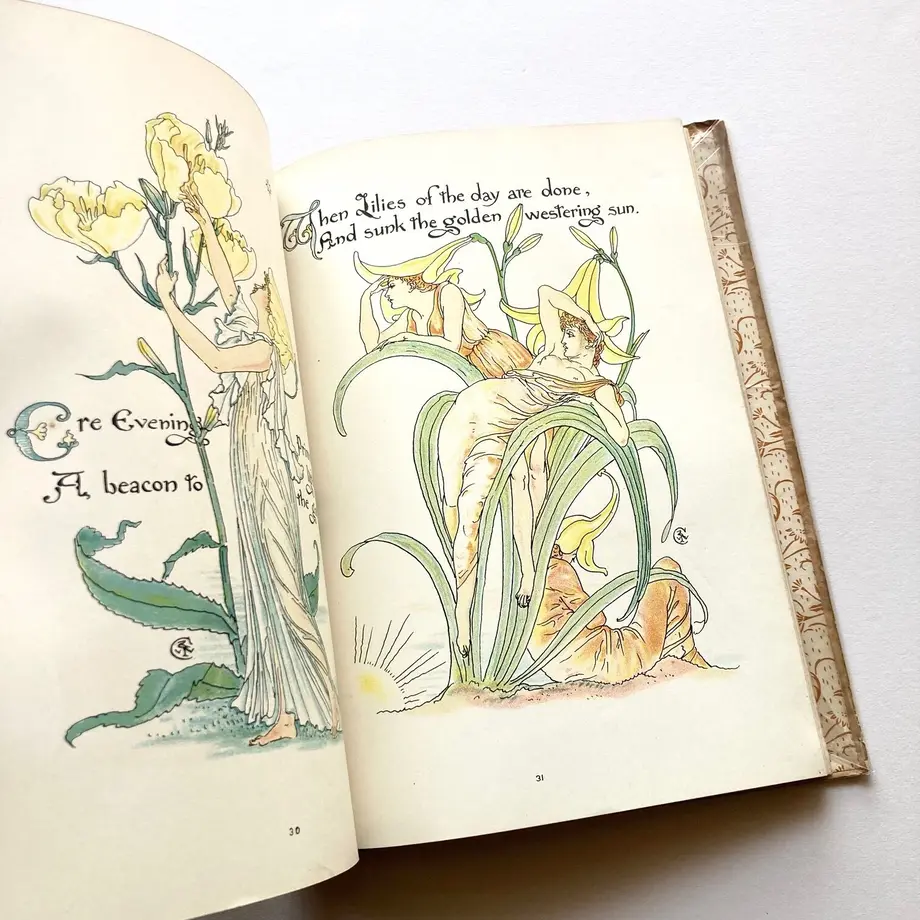 Ere Evening
A beacon to
the
30
When Lilies of the day are done,
And sunk the golden westering sun.
31